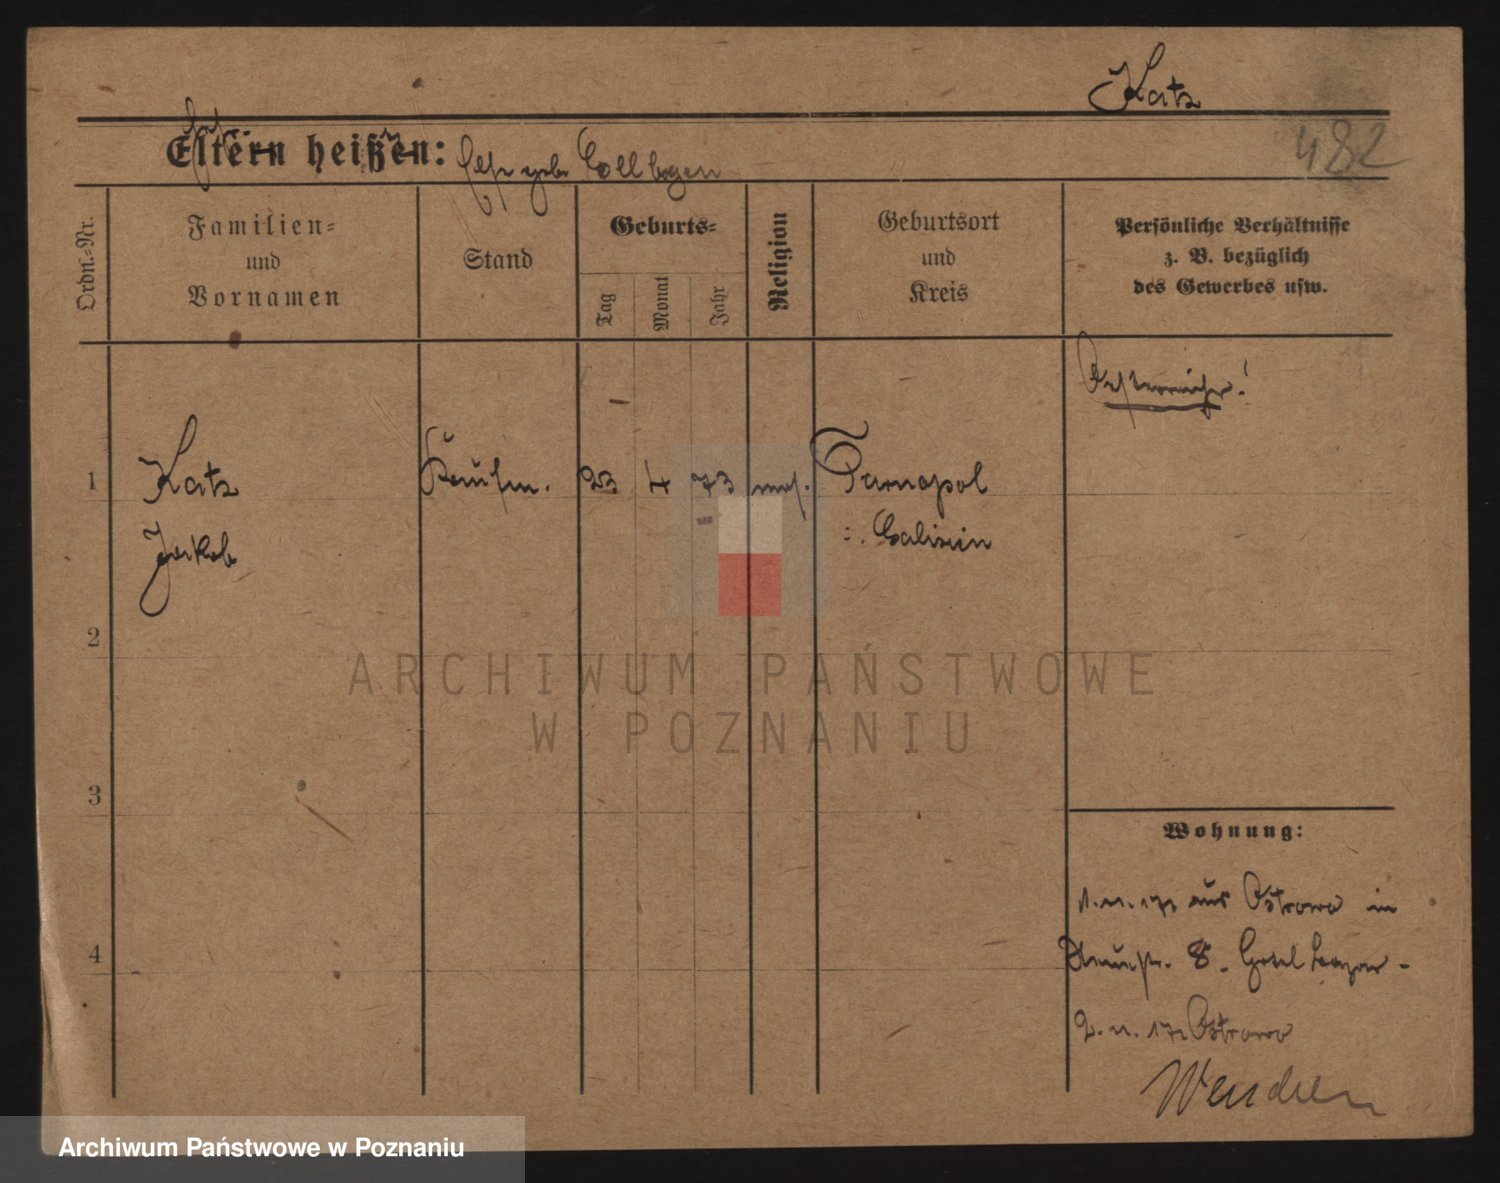 Katz
482
Eltern heißen:
geb.
Ordn.-Nr.
Familien-
und
Vornamen
Stand
Geburts-
Tag
Monat
Jahr
Religion
Geburtsort
und
Kreis
Persönliche Verhältnisse
z. B. bezüglich
des Gewerbes usw.
Österreich!
1 Katz Kaufm. 23 4 73 mos. Tarnopol
Jakob Galizien
2
3
4
ARCHIWUM PAŃSTWOWE
W POZNANIU
Wohnung:
1.11.17 aus Ostrowo in
8. Hotel
2.11.17 Ostrowo
Archiwum Państwowe w Poznaniu